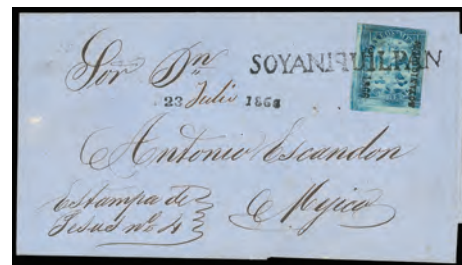 Sor Dn
SOYANIQUILPAN
23 Julio 1866
Antonio Escandon
Estampa de
Jesus no. 4
Mejico